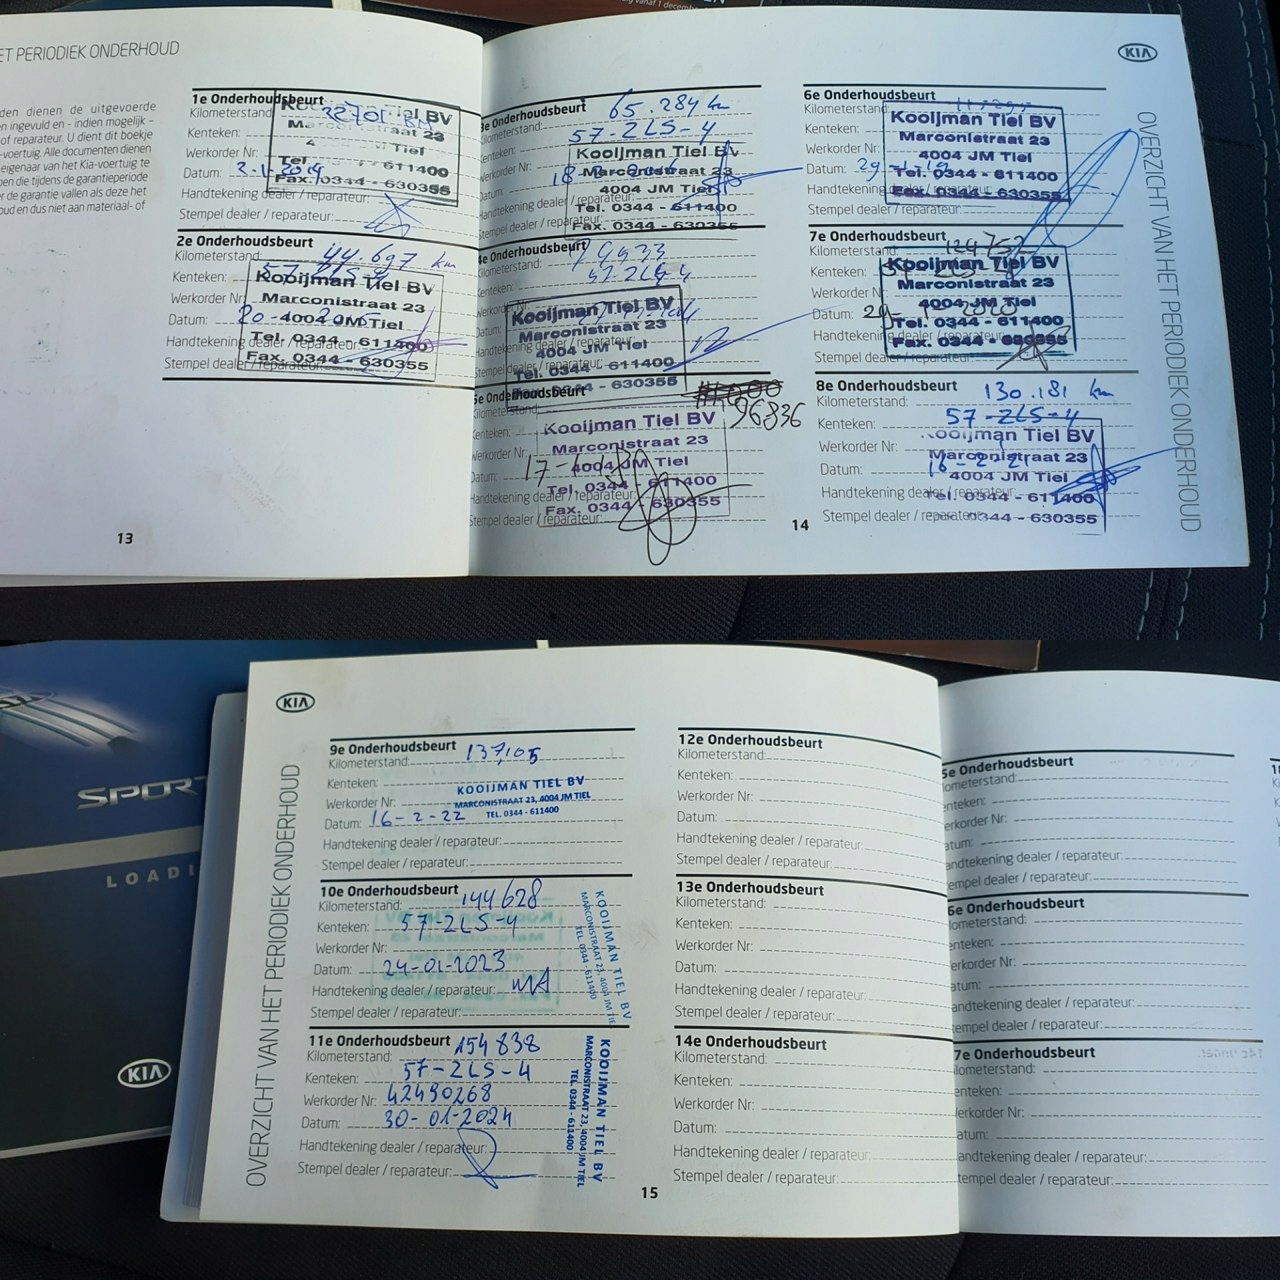 ET PERIODIEK ONDERHOUD
den dienen de uitgevoerde
n ingevuld en - indien mogelijk -
of reparateur. U dient dit boekje
-voertuig. Alle documenten dienen
eigenaar van het Kia-voertuig te
pen die tijdens de garantieperiode
er de garantie vallen als deze het
oud en dus niet aan materiaal- of
1e Onderhoudsbeurt
Kilometerstand:
Kenteken:
Werkorder Nr:
Datum:
Handtekening dealer / reparateur:
Stempel dealer / reparateur:
Marconistraat 23
Tiel
Tel. 0344 - 611400
Fax. 0344 - 630355
2e Onderhoudsbeurt
Kilometerstand: 44.697 km
Kenteken:
Werkorder Nr:
Datum:
Handtekening dealer / reparateur:
Stempel dealer / reparateur:
Kooijman Tiel BV
Marconistraat 23
4004 JM Tiel
Tel. 0344 - 611400
Fax. 0344 - 630355
13
3e Onderhoudsbeurt
Kilometerstand: 65.284 km
Kenteken: 57-ZLS-4
Werkorder Nr:
Datum:
Handtekening dealer / reparateur:
Stempel dealer / reparateur:
Kooijman Tiel BV
Marconistraat 23
4004 JM Tiel
Tel. 0344 - 611400
Fax. 0344 - 630355
4e Onderhoudsbeurt
Kilometerstand:
Kenteken:
Handtekening dealer / reparateur:
Stempel dealer / reparateur:
Kooijman Tiel BV
Marconistraat 23
4004 JM Tiel
Tel. 0344 - 611400
0344 - 630355
5e Onderhoudsbeurt
Kilometerstand: 96836
Kenteken:
Werkorder Nr:
Datum:
Handtekening dealer / reparateur:
Stempel dealer / reparateur:
Kooijman Tiel BV
Marconistraat 23
4004 JM Tiel
Tel. 0344 - 611400
Fax. 0344 - 630355
14
KIA
OVERZICHT VAN HET PERIODIEK ONDERHOUD
6e Onderhoudsbeurt
Kilometerstand:
Kenteken:
Werkorder Nr:
Datum:
Handtekening dealer / reparateur:
Stempel dealer / reparateur:
Kooijman Tiel BV
Marconistraat 23
4004 JM Tiel
Tel. 0344 - 611400
Fax. 0344 - 630355
7e Onderhoudsbeurt
Kilometerstand: 124752
Kenteken:
Werkorder Nr:
Datum:
Handtekening dealer / reparateur:
Stempel dealer / reparateur:
Kooijman Tiel BV
Marconistraat 23
4004 JM Tiel
Tel. 0344 - 611400
Fax. 0344 - 630355
8e Onderhoudsbeurt
Kilometerstand: 130.181 km
Kenteken: 57-ZLS-4
Werkorder Nr:
Datum: 16-2-21
Handtekening dealer / reparateur:
Stempel dealer / reparateur:
Kooijman Tiel BV
Marconistraat 23
4004 JM Tiel
Tel. 0344 - 611400
0344 - 630355
SPORT
LOADI
KIA
KIA
OVERZICHT VAN HET PERIODIEK ONDERHOUD
9e Onderhoudsbeurt
Kilometerstand: 137,105
Kenteken:
Werkorder Nr:
Datum: 16-2-22
Handtekening dealer / reparateur:
Stempel dealer / reparateur:
KOOIJMAN TIEL BV
MARCONISTRAAT 23, 4004 JM TIEL
TEL. 0344 - 611400
10e Onderhoudsbeurt
Kilometerstand: 144628
Kenteken: 57-ZLS-4
Werkorder Nr:
Datum: 24-01-2023
Handtekening dealer / reparateur:
Stempel dealer / reparateur:
KOOIJMAN TIEL BV
MARCONISTRAAT 23, 4004 JM TIE
TEL. 0344 - 611400
11e Onderhoudsbeurt
Kilometerstand: 154838
Kenteken: 57-ZLS-4
Werkorder Nr: 42490268
Datum: 30-01-2024
Handtekening dealer / reparateur:
Stempel dealer / reparateur:
KOOIJMAN TIEL BV
MARCONISTRAAT 23, 4004 JM TIEL
TEL. 0344 - 611400
15
12e Onderhoudsbeurt
Kilometerstand:
Kenteken:
Werkorder Nr:
Datum:
Handtekening dealer / reparateur:
Stempel dealer / reparateur:
13e Onderhoudsbeurt
Kilometerstand:
Kenteken:
Werkorder Nr:
Datum:
Handtekening dealer / reparateur:
Stempel dealer / reparateur:
14e Onderhoudsbeurt
Kilometerstand:
Kenteken:
Werkorder Nr:
Datum:
Handtekening dealer / reparateur:
Stempel dealer / reparateur:
5e Onderhoudsbeurt
ometerstand:
enteken:
erkorder Nr:
atum:
andtekening dealer / reparateur:
tempel dealer / reparateur:
6e Onderhoudsbeurt
lometerstand:
enteken:
erkorder Nr:
atum:
andtekening dealer / reparateur:
tempel dealer / reparateur:
7e Onderhoudsbeurt
lometerstand:
enteken:
erkorder Nr:
atum:
andtekening dealer / reparateur:
tempel dealer / reparateur: